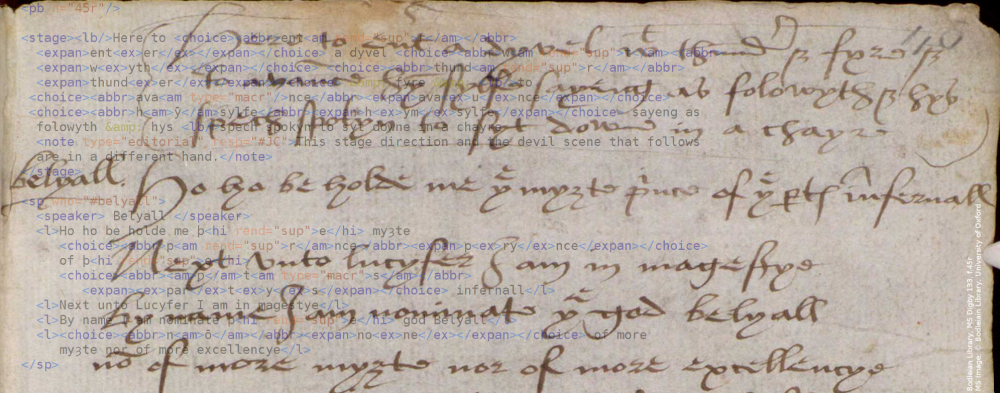 <pb n="45r"/>
<stage><lb/>Here to <choice><abbr>ent<am rend="sup"></am></abbr>
<expan>ent<ex>er</ex></expan></choice> a dyvel <choice><abbr>w<am rend="sup">t</am></abbr>
<expan>w<ex>yth</ex></expan></choice> <choice><abbr>thund<am rend="sup">r</am></abbr>
<expan>thund<ex>er</ex></expan></choice> &amp; fyre &amp; to
<choice><abbr>ava<am type="macr"/>nce</abbr><expan>ava<ex>u</ex>nce</expan></choice>
<choice><abbr>hy<am>ȳ</am>sylfe</abbr><expan>hy<ex>m</ex>sylfe</expan></choice> sayeng as
folowyth &amp; hys <lb/>spech spokyn to syt downe in a chayre
<note type="editorial" resp="#JC">This stage direction and the devil scene that follows
are in a different hand.</note>
</stage>
<sp who="#belyall">
<speaker> Belyall </speaker>
<l>Ho ho be holde me þ<hi rend="sup">e</hi> myȝte
<choice><abbr>p<am rend="sup">r</am>nce</abbr><expan>p<ex>ry</ex>nce</expan></choice>
of þ<hi rend="sup">e</hi>
<choice><abbr><am>p</am>t<am type="macr">s</am></abbr>
<expan><ex>par</ex>t<ex>y</ex>s</expan></choice> infernall</l>
<l>Next unto Lucyfer I am in magestye</l>
<l>By name I am nominate þ<hi rend="sup">e</hi> god Belyall</l>
<l><choice><abbr>n<am>ō</am></abbr><expan>no<ex>ne</ex></expan></choice> of more
myȝte nor of more excellencye</l>
</sp>
Here to ent a dyvel wt thundr & fyre &
to avance hy sylfe sayeng as folowyth & hys
spech spokyn to syt downe in a chayre
belyall. Ho ho be holde me þe myȝte prnce of þe pts infernall
Next vnto lucyfer I am in magestye
By name I am nominate þe god belyall
no of more myȝte nor of more excellencye
Bodleian Library, MS Digby 133, f.45r.
MS image: © Bodleian Library, University of Oxford